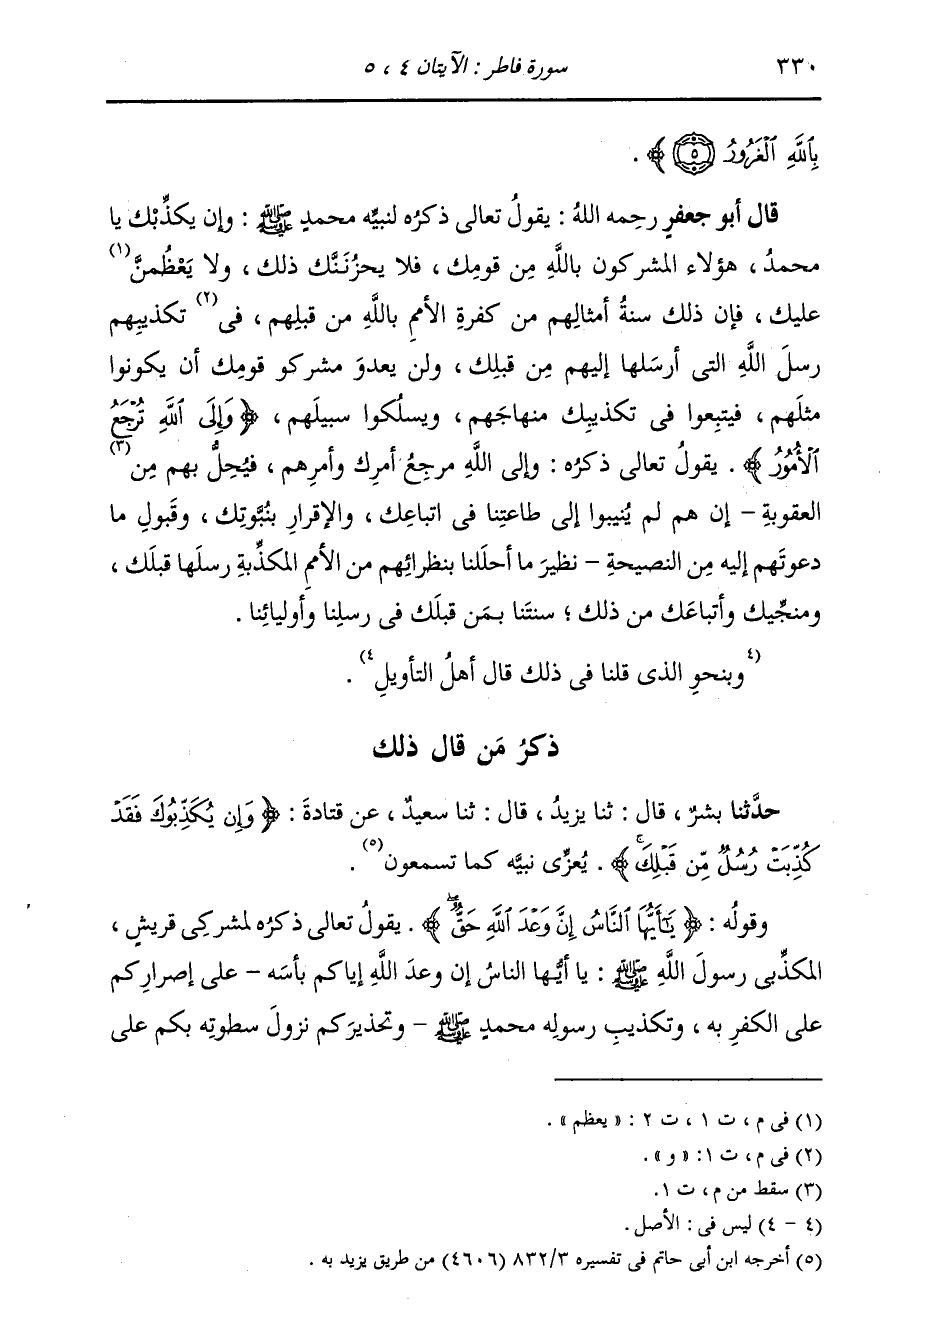 ٣٣٠
سورة فاطر : الآيتان ٤ ، ٥
بِٱللَّهِ ٱلْغَرُورُ (٥) ﴾ .
قال أبو جعفرٍ رحِمه اللهُ : يقولُ تعالى ذكرُه لنبيِّه محمدٍ ﷺ : وإن يكذِّبْك يا
محمدُ ، هؤلاء المشركون باللَّهِ مِن قومِك ، فلا يحزُنَنَّك ذلك ، ولا يَعْظُمنَّ(١)
عليك ، فإن ذلك سنةُ أمثالِهم من كفرةِ الأممِ باللَّهِ من قبلِهم ، فى(٢) تكذيبِهم
رسلَ اللَّهِ التى أرسَلها إليهم مِن قبلِك ، ولن يعدوَ مشركو قومِك أن يكونوا
مثلَهم ، فيتبِعوا فى تكذيبِك منهاجَهم ، ويسلُكوا سبيلَهم ، ﴿ وَإِلَى ٱللَّهِ تُرْجَعُ
ٱلْأُمُورُ ﴾ . يقولُ تعالى ذكرُه : وإلى اللَّهِ مرجِعُ أمرِك وأمرِهم ، فيُحِلُّ بهم مِن(٣)
العقوبةِ - إن هم لم يُنيبوا إلى طاعتِنا فى اتباعِك ، والإقرارِ بنُبُوَّتِك ، وقَبولِ ما
دعوتَهم إليه مِن النصيحةِ - نظيرَ ما أحلَلنا بنظرائِهم من الأممِ المكذِّبةِ رسلَها قبلَك ،
ومنجِّيك وأتباعَك من ذلك ؛ سنتَنا بـمَن قبلَك فى رسلِنا وأوليائِنا .
(٤وبنحوِ الذى قلنا فى ذلك قال أهلُ التأويلِ٤) .
ذكرُ مَن قال ذلك
حدَّثنا بشرٌ ، قال : ثنا يزيدُ ، قال : ثنا سعيدٌ ، عن قتادةَ : ﴿ وَإِن يُكَذِّبُوكَ فَقَدْ
كُذِّبَتْ رُسُلٌ مِّن قَبْلِكَ ﴾ . يُعزِّى نبيَّه كما تسمعون(٥) .
وقولُه : ﴿ يَٰٓأَيُّهَا ٱلنَّاسُ إِنَّ وَعْدَ ٱللَّهِ حَقٌّ ﴾ . يقولُ تعالى ذكرُه لمشركِى قريشٍ ،
المكذِّبى رسولَ اللَّهِ ﷺ : يا أيُّها الناسُ إن وعدَ اللَّهِ إياكم بأسَه - على إصرارِكم
على الكفرِ به ، وتكذيبِ رسولِه محمدٍ ﷺ - وتحذيرَكم نزولَ سطوتِه بكم على
(١) فى م ، ت ١ ، ت ٢ : « يعظم » .
(٢) فى م ، ت ١ : « و » .
(٣) سقط من م ، ت ١.
(٤ - ٤) ليس فى : الأصل .
(٥) أخرجه ابن أبى حاتم فى تفسيره ٨٣٢/٣ (٤٦٠٦) من طريق يزيد به .